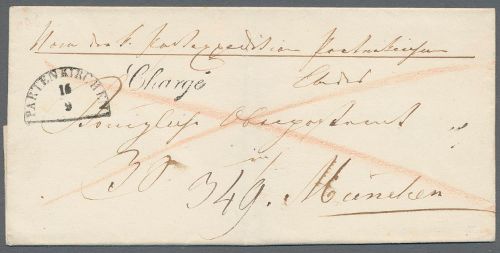 Von der k. Postexpedition Partenkirchen
PARTENKIRCHEN
16
9
Chargé
An das
Königliche Oberpostamt
in
349. München